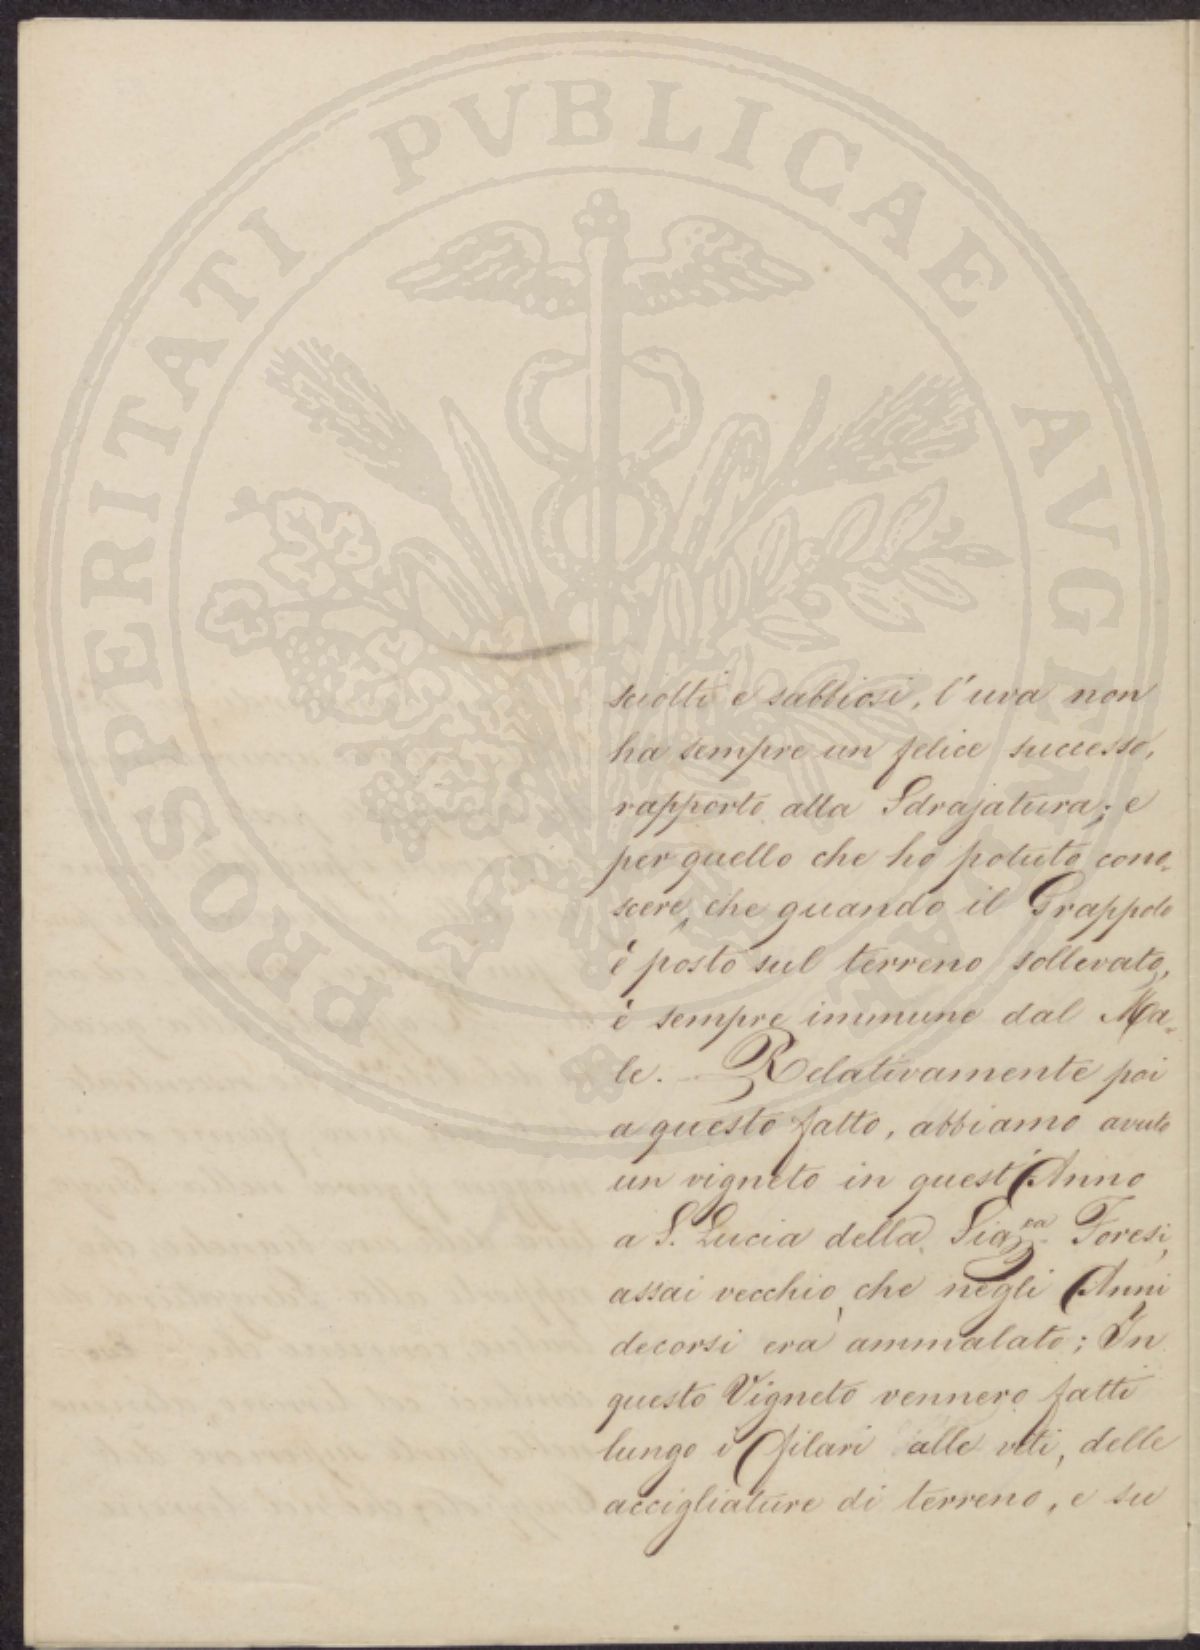 PROSPERITATI PVBLICAE AVGENDAE
sciolti e sabbiosi, l'uva non
ha sempre un felice successo,
rapporto alla Sdrajatura; e
per quello che ho potuto cono-
scere, che quando il Grappolo
è posto sul terreno sollevato,
è sempre immune dal Ma-
le. — Relativamente poi
a questo fatto, abbiamo avuto
un vigneto in quest'Anno
a S. Lucia della Sig.ra Foresi,
assai vecchio, che negli Anni
decorsi era ammalato; In
questo Vigneto vennero fatti
lungo i filari alle viti, delle
accigliature di terreno, e su